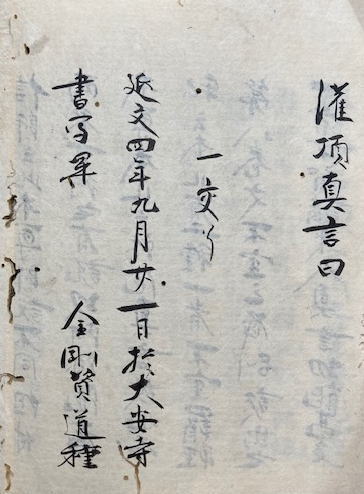 灌頂真言曰
一交了
延文四年九月廿一日於大安寺
書写畢
金剛賛道種